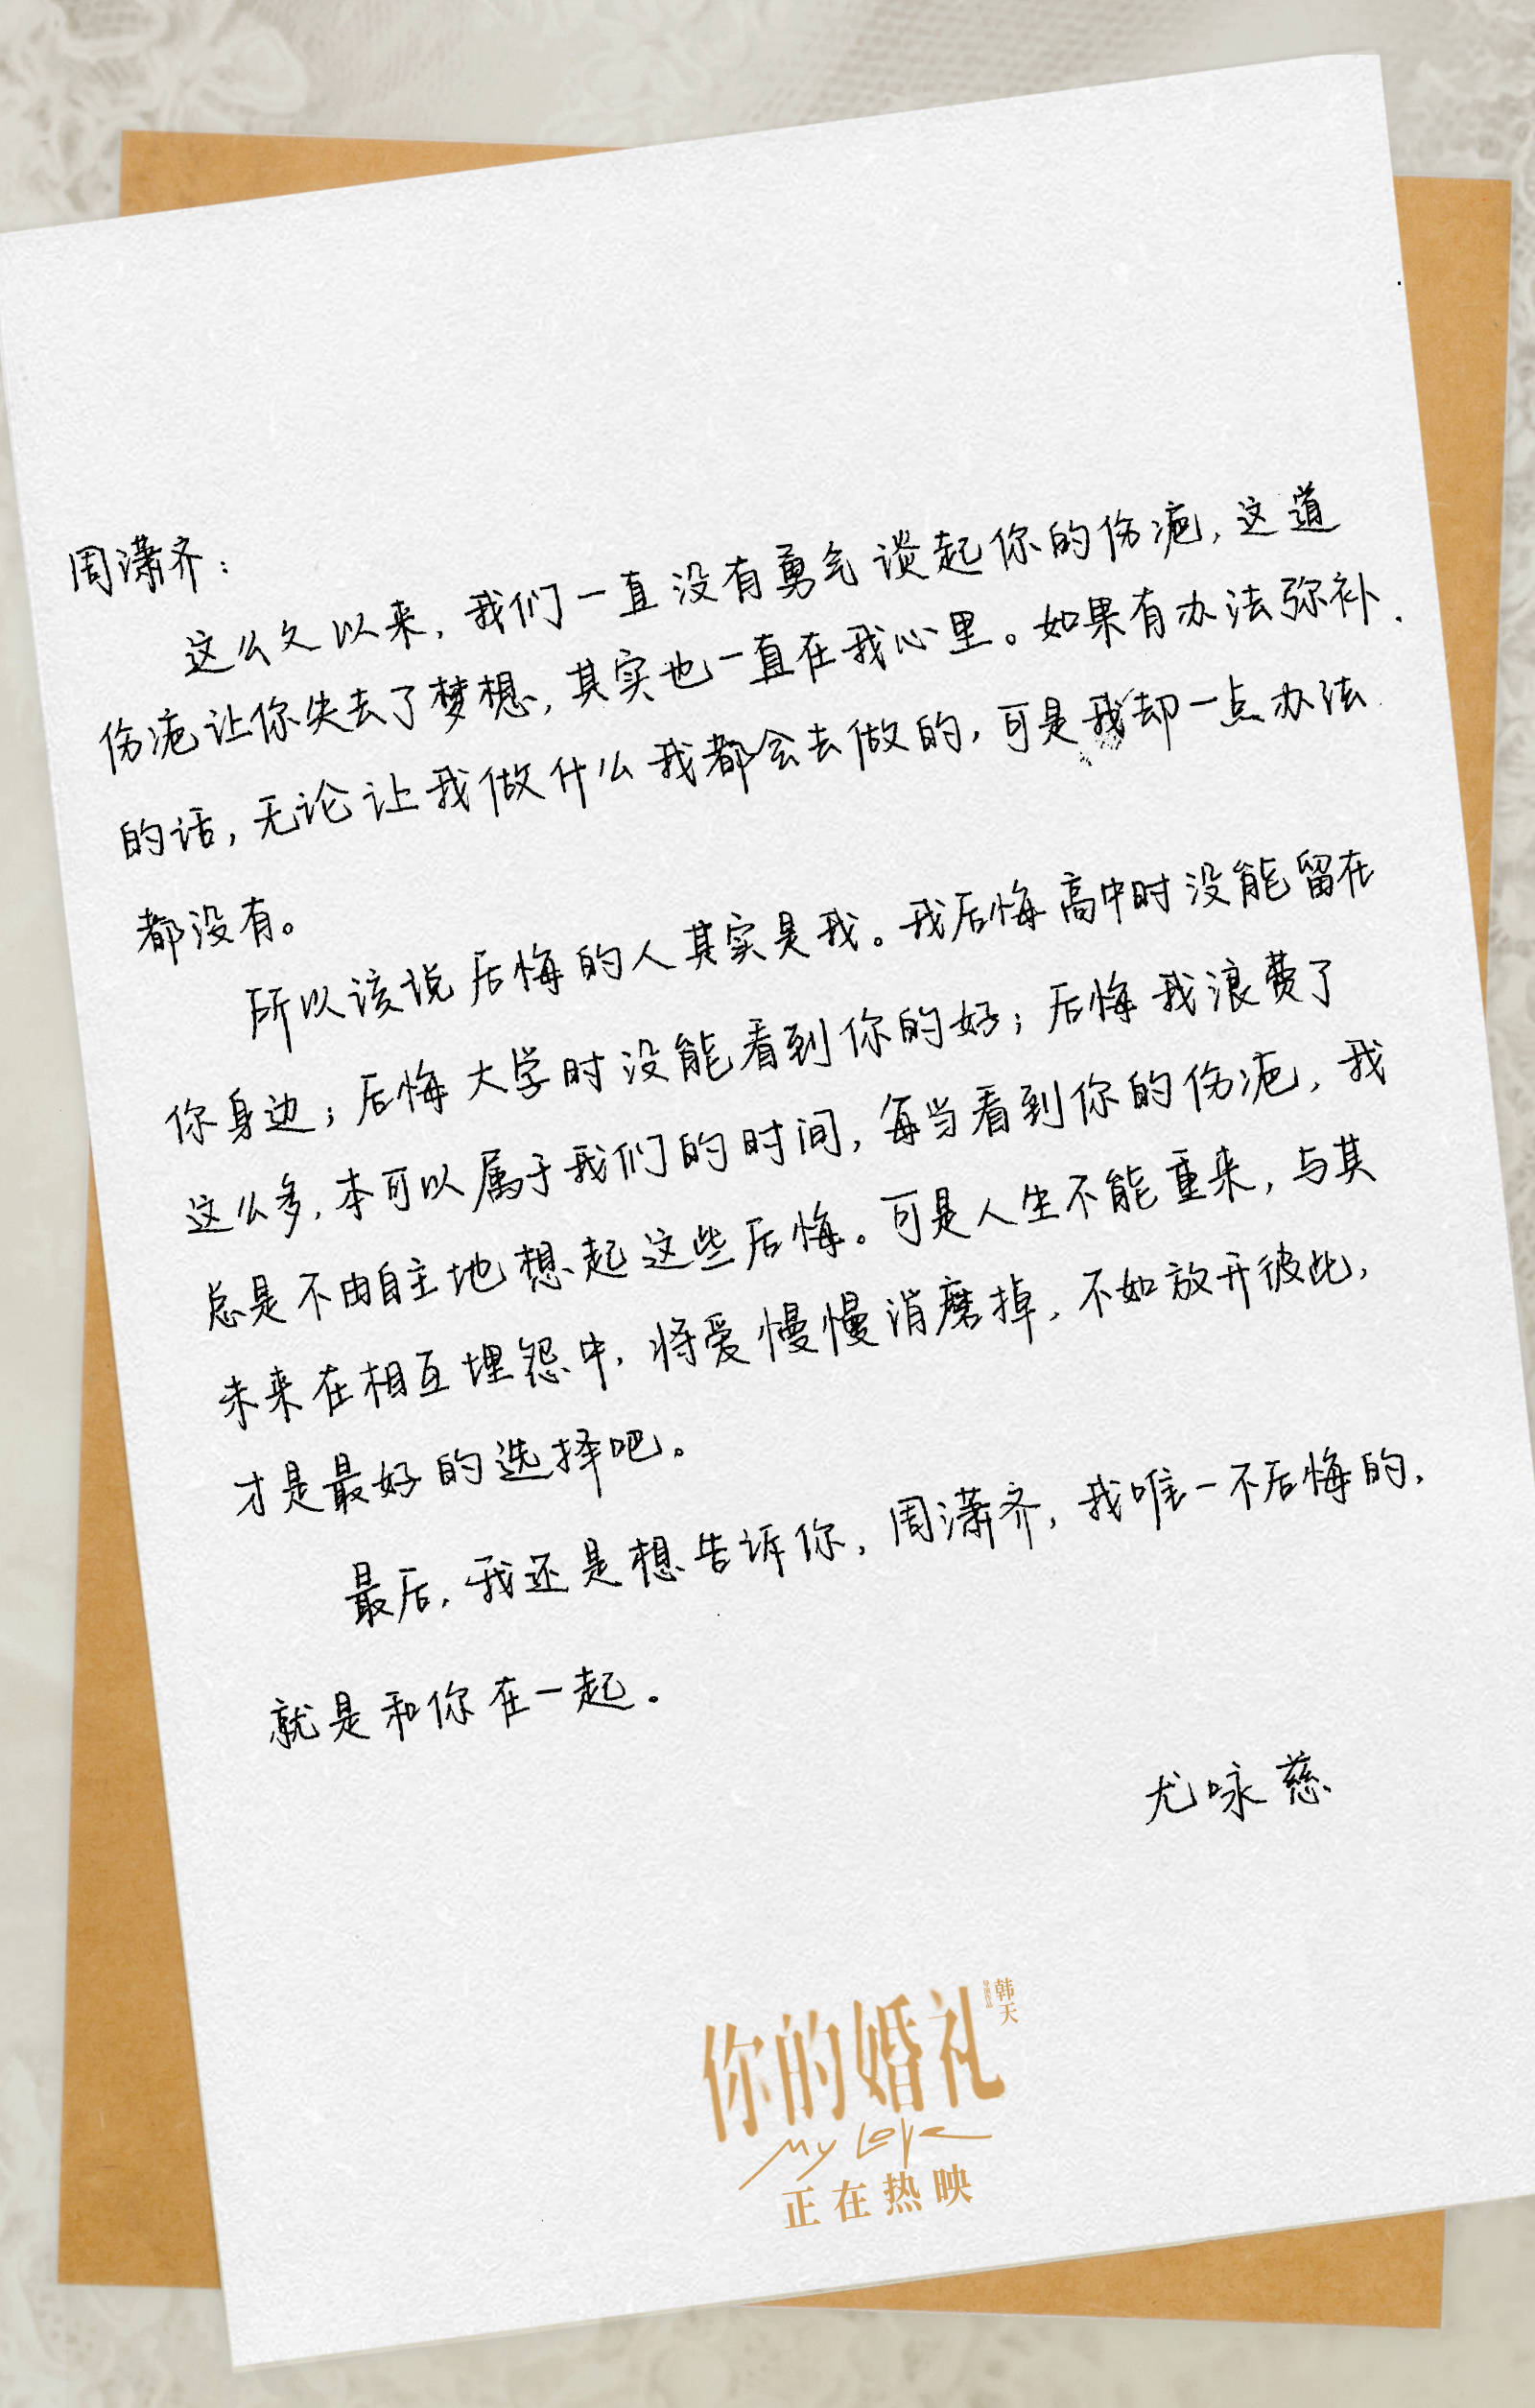 周潇齐：
这么久以来，我们一直没有勇气谈起你的伤疤，这道
伤疤让你失去了梦想，其实也一直在我心里。如果有办法弥补
的话，无论让我做什么我都会去做的，可是我却一点办法
都没有。
所以该说后悔的人其实是我。我后悔高中时没能留在
你身边；后悔大学时没能看到你的好；后悔我浪费了
这么多，本可以属于我们的时间，每当看到你的伤疤，我
总是不由自主地想起这些后悔。可是人生不能重来，与其
未来在相互埋怨中，将爱慢慢消磨掉，不如放开彼此，
才是最好的选择吧。
最后，我还是想告诉你，周潇齐，我唯一不后悔的，
就是和你在一起。
尤咏慈
你的婚礼
韩天
My Love
正在热映